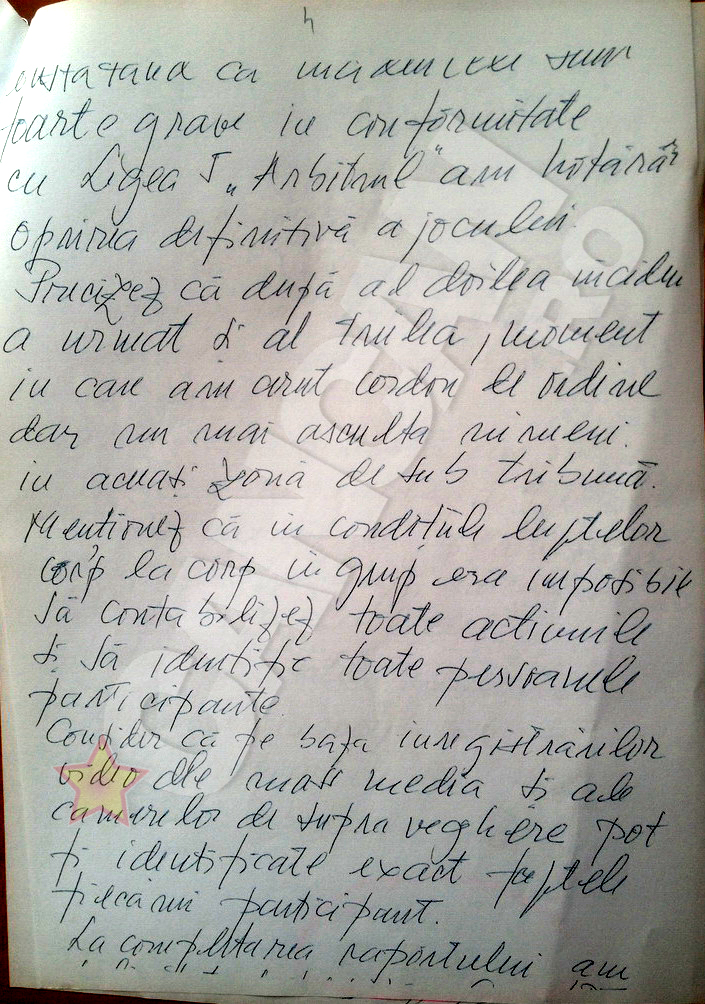 4
constatând că incidentele sunt
foarte grave în conformitate
cu Legea 5 „Arbitrul" am hotărât
oprirea definitivă a jocului.
Precizez că după al doilea incident
a urmat și al treilea, moment
în care am cerut cordon de ordine
dar nu mai asculta nimeni.
în aceeași zonă de sub tribună.
Menționez că în condițiile luptelor
corp la corp în grup era imposibil
să contabilizez toate acțiunile
și să identific toate persoanele
participante.
Consider că pe baza înregistrărilor
video ale mass media și ale
camerelor de supraveghere pot
fi identificate exact faptele
fiecărui participant.
La completarea raportului am
CANCAN.RO